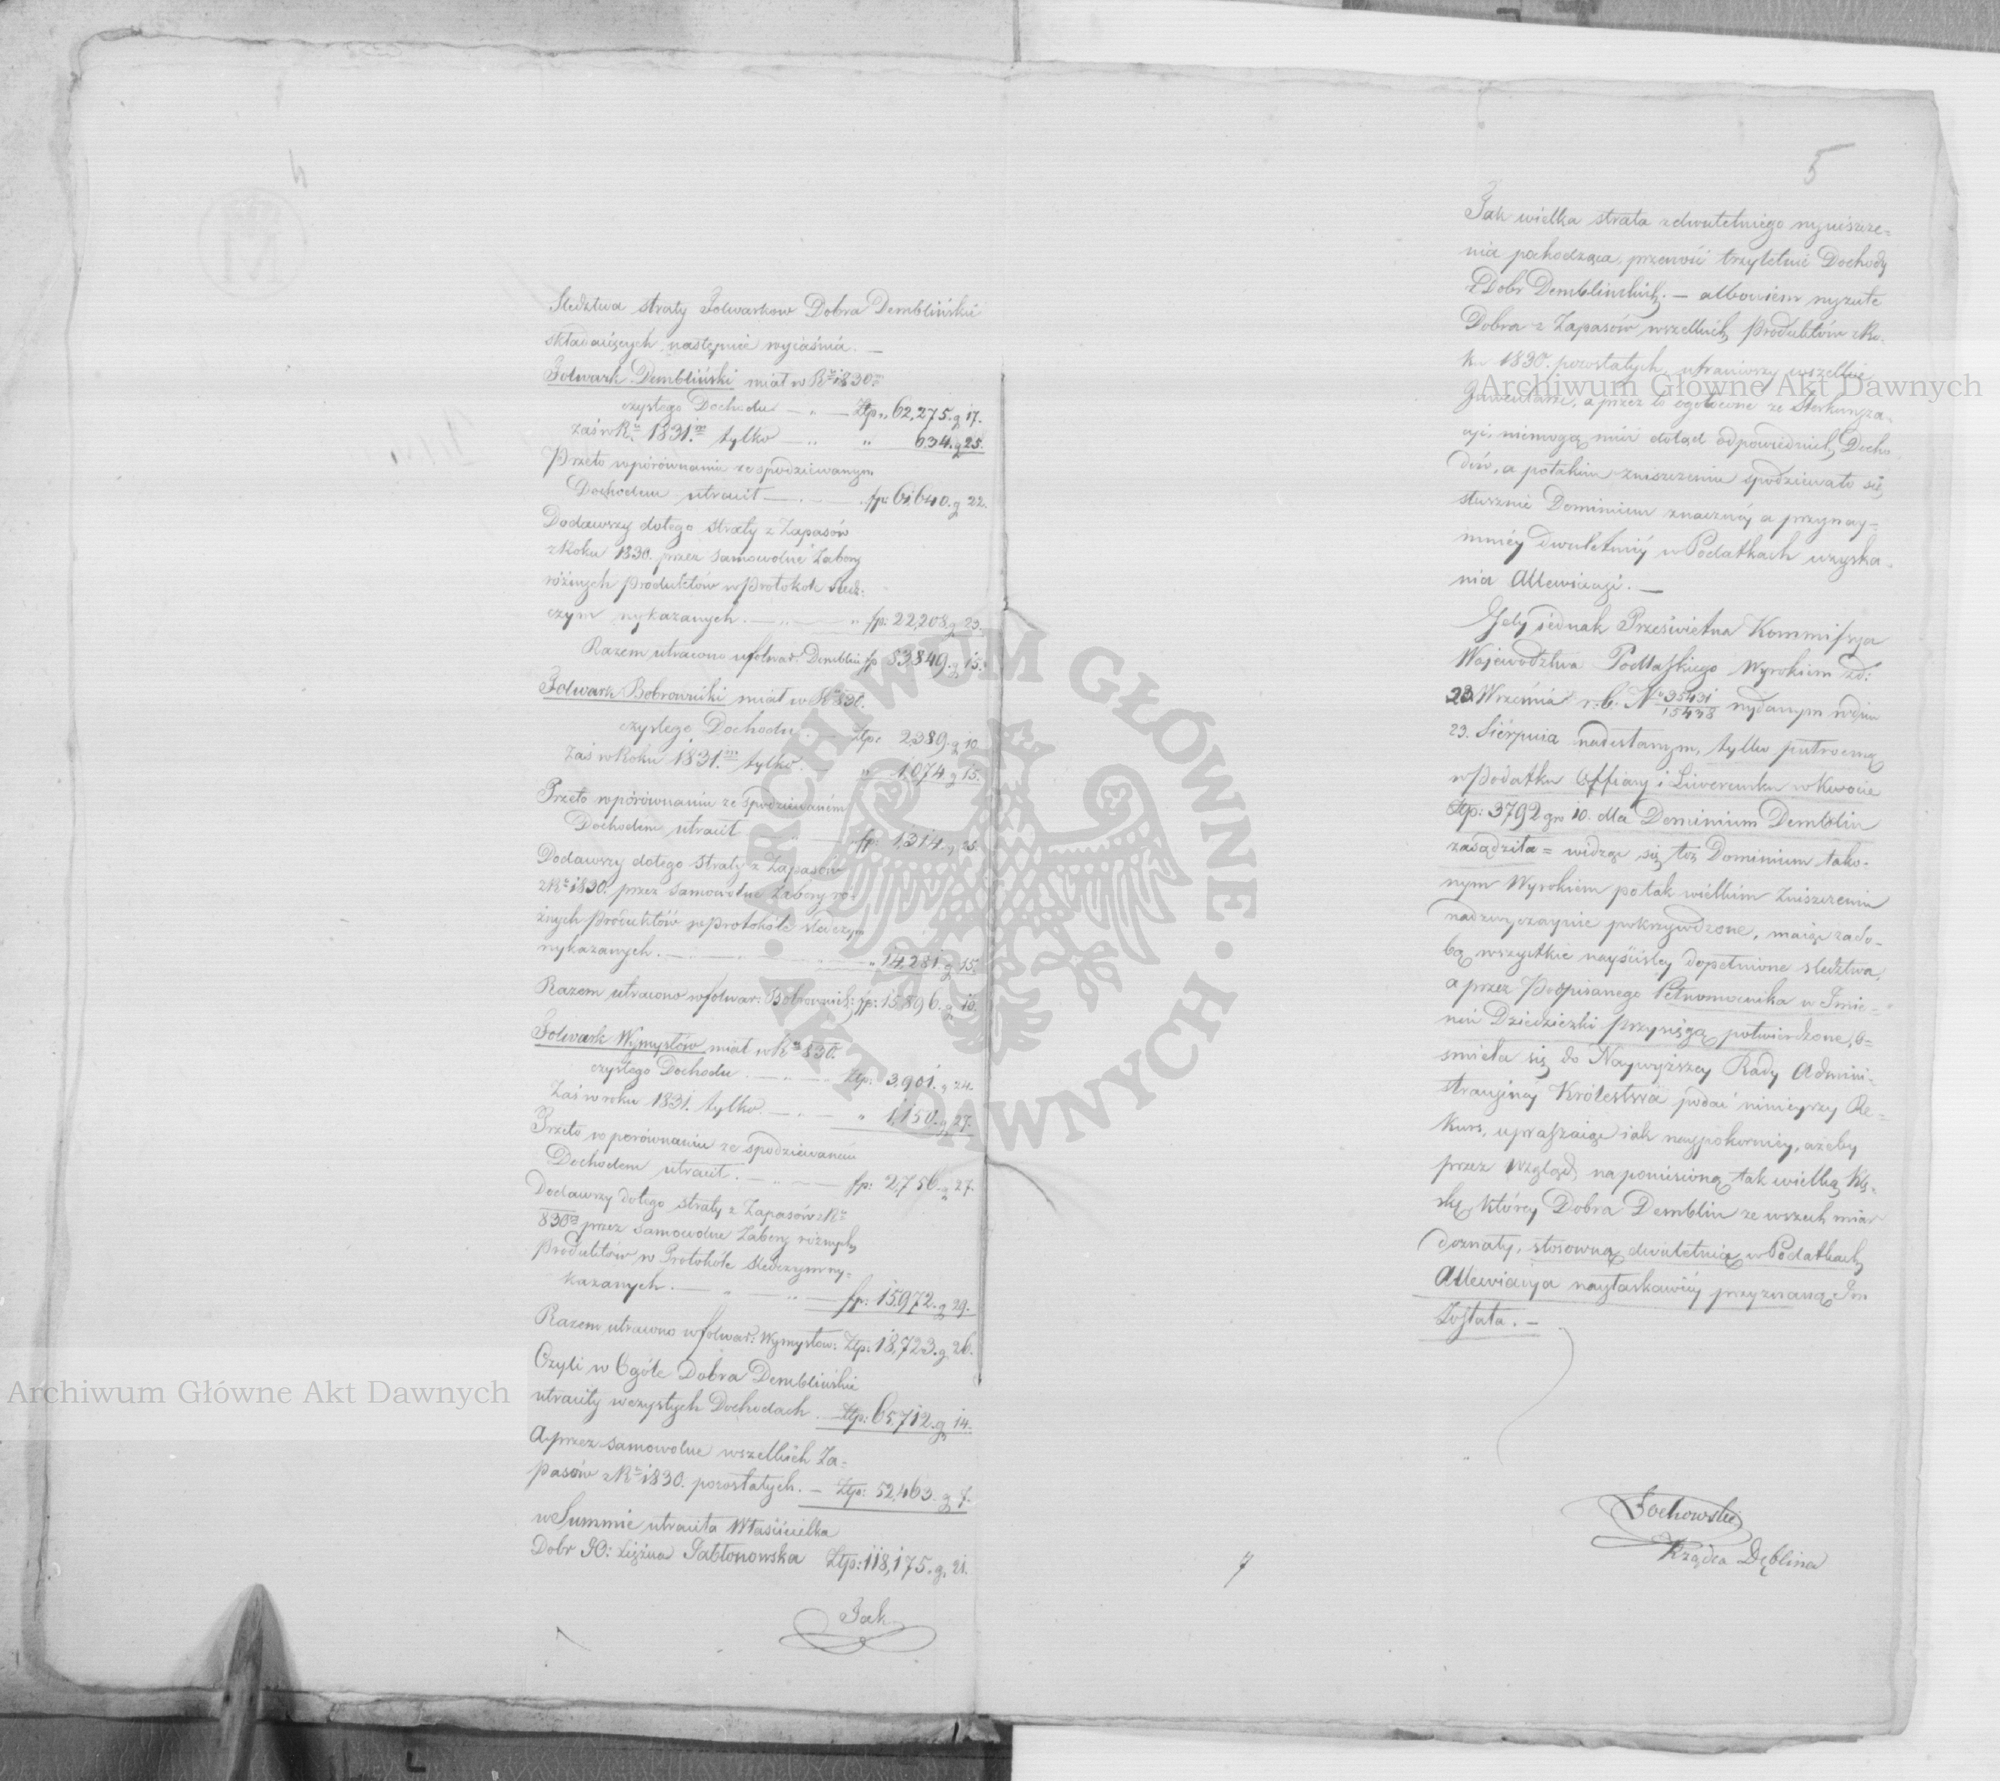 Śledztwa straty Folwarkow Dobra Demblińskie
składaiących następnie wyiaśnia. —
Folwark Dembliński miał w Rº 1830m
czystego Dochodu — „ — Ztp „ 62,275. g 17.
zaś w Ru 1831.m tylko — „ „ 634. g 25.
Przeto w porównaniu ze spodziewanym
Dochodem utracił — „ — fp: 61,640. g 22.
Dodawszy dotego straty z Zapasów
z Roku 1830. przez samowolne Zabory
różnych Produktów w Protokole śled=
czym wykazanych. — „ — „ fp: 22,208. g 23.
Razem utracono w folwar: Demblin fp 83,849. g 15.
Folwark Bobrownicki miał w Rº 830.
czystego Dochodu — Ztp: 2,389. g 10
Zaś w Roku 1831.m tylko. — „ 1,074. g 15.
Przeto w porównaniu ze spodziewanem
Dochodem utracił „ fp: 1,314. g 25.
Dodawszy dotego straty z Zapasów
z Ru 1830. przez samowolne Zabory ró=
żnych Produktów w Protokóle śledczym
wykazanych. — „ — „ — „ 14,281. g 15.
Razem utracono w folwar: Bobrownick: fp: 15,896. g 10.
Folwark Wymysłów miał w Ru 830.
czystego Dochodu — „ — Ztp: 3,901. „ 24.
Zaś w roku 1831. tylko. — „ — „ 1,150. g 27.
Przeto w porównaniu ze spodziewanem
Dochodem utracił. — „ — fp: 2,750. g 27.
Dodawszy dotego straty z Zapasów z Ru
830m przez samowolne Zabory różnych
Produktów w Protokóle śledczym wy=
kazanych. — „ — „ — fp: 15,972. g 29.
Razem utracono w folwar: Wymysłów: Ztp: 18,723. g 26.
Czyli w Ogóle Dobra Demblińskie
utraciły w czystych Dochodach — Ztp: 65,712. g 14.
A przez samowolne wszelkich Za=
pasów z Ru 1830. pozostałych. — Ztp: 52,463. g 7.
w Summie utraciła Właścicielka
Dobr JO: Xiężna Jabłonowska Ztp: 118,175. g 21.
Jak
5
Jak wielka strata z dwuletniego wyniszcze=
nia pochodząca, przenosi trzyletnie Dochody
z Dobr Demblińskich. — albowiem wyzute
Dobra z Zapasów wszelkich Produktów z Ro=
ku 1830. pozostałych, utraciwszy wszelkie
Inwentarze, a przez to ogołocone ze sterkoryza=
cyi, niemogą mieć dotąd odpowiednich Docho=
dów, a po takim zniszczeniu spodziewało się
słusznie Dominium znaczney a przynay=
mniey dwuletniey w Podatkach uzyska=
nia Allewiacyi. —
Gdy jednak Prześwietna Kommissya
Województwa Podlaskiego Wyrokiem z d:
23 Września r. b. Nº 35431/15438 wydanym w dniu
23. Sierpnia nadesłanym, tylko potrącenie
w Podatku Offiary i Liwerunku w Kwocie
Ztp: 3792 gro 10. dla Dominium Demblin
zasądziła = widząc się toż Dominium tako=
wym Wyrokiem po tak wielkim zniszczeniu
nadzwyczaynie pokrzywdzone, maiąc zado=
bą wszystkie nayściśley dopełnione śledztwa,
a przez Podpisanego Pełnomocnika w Imie=
niu Dziedziczki Przysięgą potwierdzone, o=
śmiela się do Naywyższey Rady Admini=
stracyiney Królestwa podać niniejszy Re=
kurs, upraszaiąc iak naypokorniey, ażeby
przez wzgląd, na poniesioną tak wielką Klę=
skę którey Dobra Demblin ze wszech miar
doznały, stosowną dwuletnią w Podatkach
Allewiacya nayłaskawiey przyznaną Im
Została. —
Rządca Dęblina
7
Archiwum Główne Akt Dawnych
Archiwum Główne Akt Dawnych
ARCHIWUM GŁÓWNE · AKT DAWNYCH ·